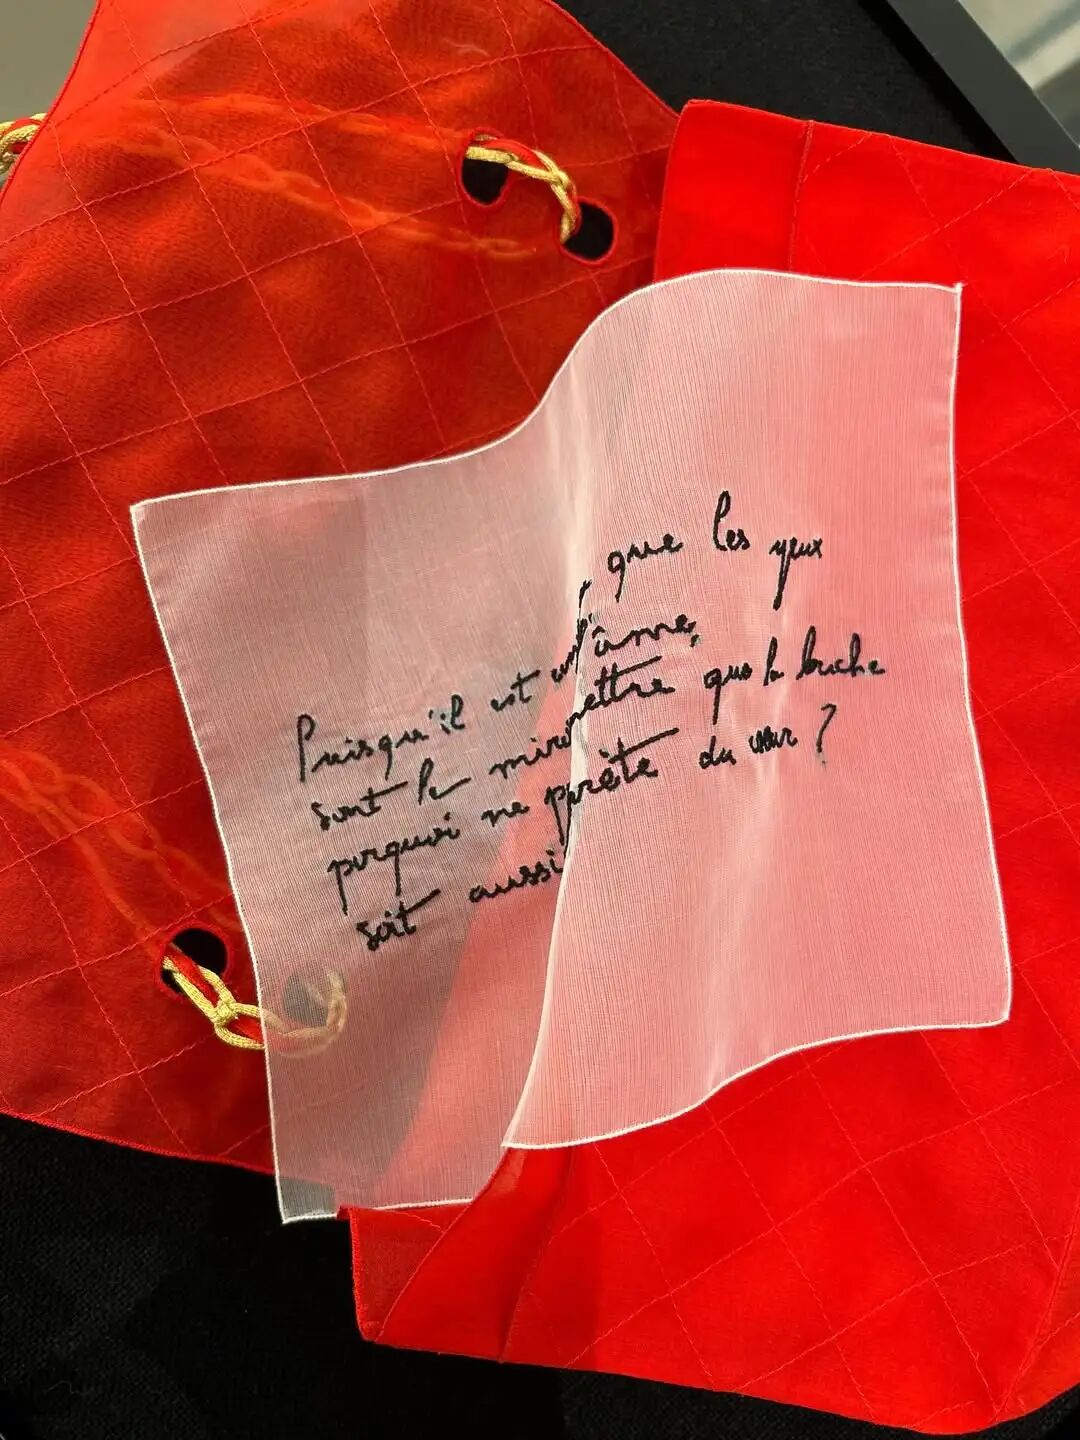 Puisqu'il est que les yeux
sont le miroi l'âme,
pourquoi ne mettre que la bouche
soit aussi prète du cœur ?